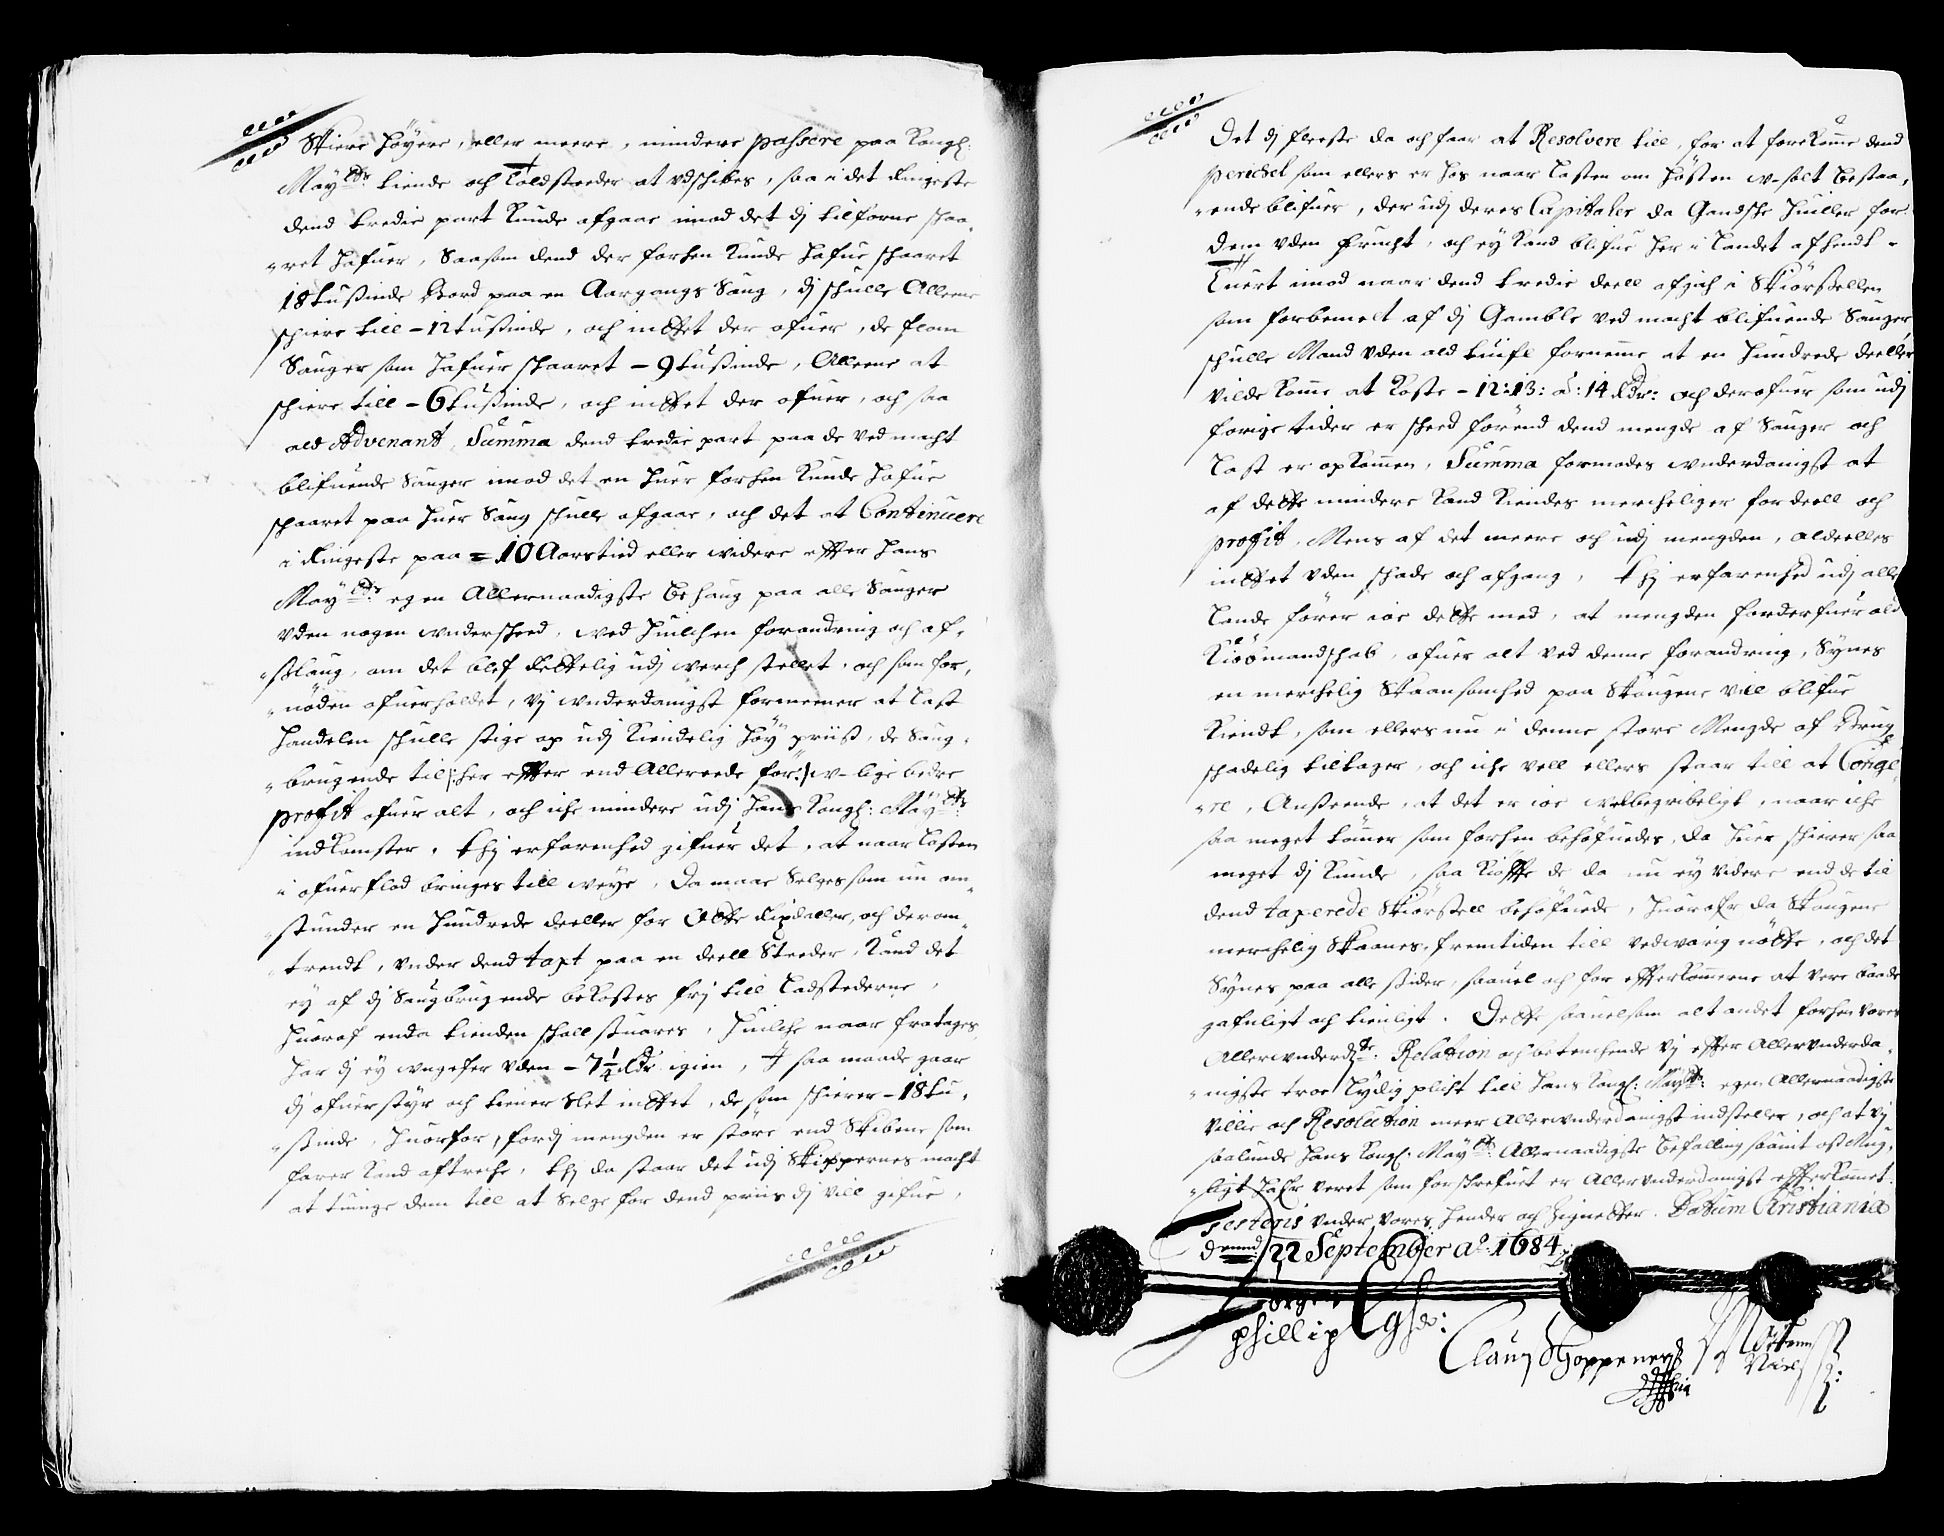 Skiere høyere, eller meere, mindere passere paa Kongl:
May:tts tiende och Toldsteder at vdschibes, saa i det Ringeste
dend tredie part Kunde afgaae imod det dj tilforne skaa-
-ret hafuer, Saasom dend der forhen Kunde hafue schaaret
18 tusinde Bord paa en Aargangs Saug, dj schulle Alleene
schiere till - 12 tusinde, och inttet der ofuer, de flom
Sauger som hafuer skaaret - 9 tusinde, Alleene at
schiere till - 6 tusinde, och inttet der ofuer, och saa
ald Advenant, Summa dend tredie part paa de ved macht
blifuende Sauger imod det en huer forhen Kunde hafue
schaaret paa huer Saug schulle afgaae, och det at Continuere
i Ringeste paa = 10 Aarstid eller widere effter Hans
May:tts egen Allernaadigste behaug paa alle Sauger
vden nogen wnderscheed, wed huilchen forandring och af-
-slaug, om det blef Rettelig udj werch stellet, och som for-
-nöden ofuerholdet, vj wnderdanigst formeener at Last
Handelen schulle stige op udj Kiendelig høy priiß, de Saug-
-brugende til|:her effter end Allereede for:| w-lige bedre
profit ofuer alt, och iche mindere udj Hans Kongl: May:tts
indKomster, thj erfarenhed gifuer det, at naar Lasten
i ofuerflod bringes till weye, da maae Selges som nu om-
-stunder en Hundrede deeller for Otte Rixdaller, och der om-
-trendt, vnder dend taxt paa en deell Steeder, Kand det
ey af dj Saugbrugende beKostes frj till Ladstederne,
huoraf enda tienden schall suares, huilche naar fratages
har dj ey ungefer vden - 7 1/4 Rdr igien, J saa maade gaar
dj ofuer styr och tiener Slet inttet, de som schierer - 18 tu-
-sinde, huorfor, fordj mengden er store end Skibene som
farer Kand aftreche, thj da staar det udj Skippernes macht
at tuinge dem till at Selge for dend priis dj vill gifue,
Det dj fleeste da och faar at Resolvere till, for at foreKomme dend
perichel som ellers er hos naar Lasten om høsten w-solt bestaa-
-ende blifuer, der udj deres Capitaler da Gandsche huiller for
dem vden frucht, och ey Kand blifue her i Landet afhendt -
Tuert imod naar dend tredie deell afgich i Skiørßellen
som forbemelt af dj Gamble ved macht blifuende Sauger,
schulle Mand vden ald tuifl fornemme at en hundrede deeller
vilde Komme at Koste - 12: 13: a: 14 Rdr: och derofuer som udj
forige tider er scheed førend dend mengde af Sauger och
Last er opKommen, Summa formodes wnderdanigst at
af dette mindere Kand Kiendes mercheliger fordeell och
profit, Mens af det meere och udj mengden, aldeelles
inttet vden schade och afgang, thj erfarenhed udj alle
Lande fører ioe dette med, at mengden forderfuer ald
Kiöbmandschab, ofuer alt ved denne forandring, Synes
en merchelig Skaansomhed paa Skougene vill blifue
Kiendt, som ellers nu i denne store Mengde af Brug
schadelig tiltager, och iche vell ellers staar till at Corige-
-re, Anseende, at det er ioe welbegribeligt, naar iche
saa meget tømer som forhen behøfuedes, da huer schierer saa
meget dj Kunde, saa Kiöffte de da nu ey videre end de til
dend taxerede Skiørßell behøfuede, huorofr da Skougene
merchelig Skaanes, fremtiden till vedwarig nötte, och det
Synes paa alle sider, saauel och for effterKommerne at vere baade
gafnligt och tienligt. Dette saauelsom alt andet forhen vores
Allerwnderd:te Relation och betenchende vj effter Allerwnderda-
-nigste troe Lydig plicht till Hans Kongl: May:tts egen Allernaadigste
villie och Resolution meer Allerwnderdanigst indsteller, och at vj
saalunde Hans Kongl: May:tts Allernaadigste befalling saamt os mu-
-ligt hafr veret som forschrefuet er Allerwnderdanigst effterKommet.
Testeris vnder vores hender och Zignetter. Datum Christiania
dennd 22 September Ao: 1684
Jørgen
phillip
Clauj Schoppener
Morten
Niel